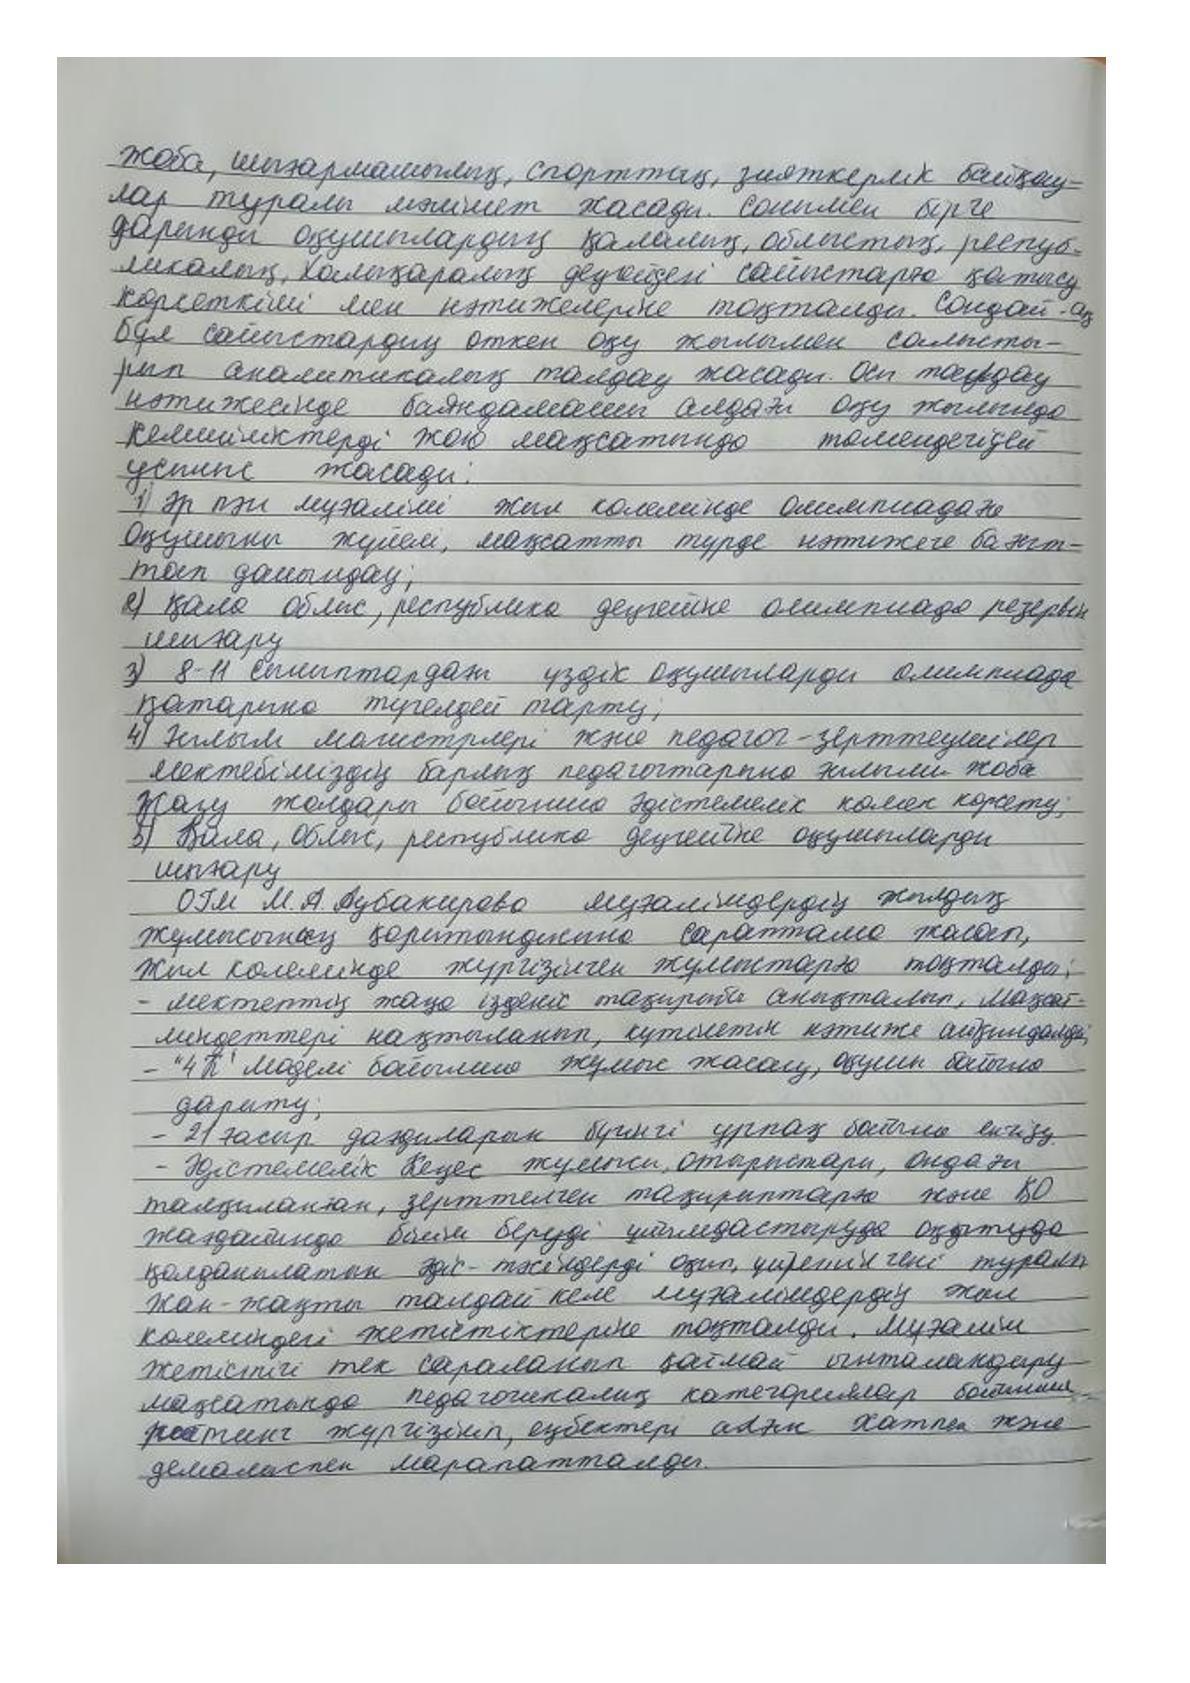 жоба, шығармашылық, спорттық, зияткерлік байқау-
лар туралы мәлімет жасады. Сонымен бірге
дарынды оқушылардың қалалық, облыстық, респуб-
ликалық, халықаралық деңгейдегі сайыстарға қатысу
көрсеткіші мен нәтижелеріне тоқталды. Сондай-ақ
бұл сайыстардың өткен оқу жылымен салысты-
рып аналитикалық талдау жасады. Осы таңдау
нәтижесінде баяндамашы алдағы оқу жылында
кемшіліктерді жою мақсатында төмендегідей
ұсыныс жасады:
1) Әр пән мұғалімі жыл көлемінде олимпиадаға
оқушыны жүйелі, мақсатты түрде нәтижеге бағыт-
тап дайындау;
2) Қала облыс, республика деңгейіне олимпиада резервін
шығару
3) 8-11 сыныптардағы үздік оқушыларды олимпиада
қатарына түгелдей тарту;
4) Ғылым магистрлері және педагог-зерттеушілер
мектебіміздің барлық педагогтарына ғылыми жоба
жазу жолдары бойынша әдістемелік көмек көрсету;
5) Қала, облыс, республика деңгейіне оқушыларды
шығару
ОІМ М.А. Аубакирова мұғалімдердің жылдық
жұмысының қорытындысына сараптама жасап,
жыл көлемінде жүргізілген жұмыстарға тоқталды;
- мектептің жаңа ізденіс тақырыбы анықталып, мақсат-
міндеттері нақтыланып, күтілетін нәтиже айқындалды;
- "4 К" моделі бойынша жұмыс жасау, оқушы бойына
дарыту;
- 21 ғасыр дағдыларын бүгінгі ұрпақ бойына енгізу
- Әдістемелік Кеңес жұмысы, отырыстары, ондағы
талқыланған, зерттелген тақырыптарға және ҚО
жағдайында білім беруді ұйымдастыруда оқытуда
қолданылатын әдіс-тәсілдерді оқып, үйренгені туралы
жан-жақты талдай келе мұғалімдердің жыл
көлеміндегі жетістіктеріне тоқталды. Мұғалім
жетістігі тек сараланып қоймай ынталандыру
мақсатында педагогикалық категориялар бойынша
рейтинг жүргізіліп, еңбектері алғыс хатпен және
демалыспен марапатталды.